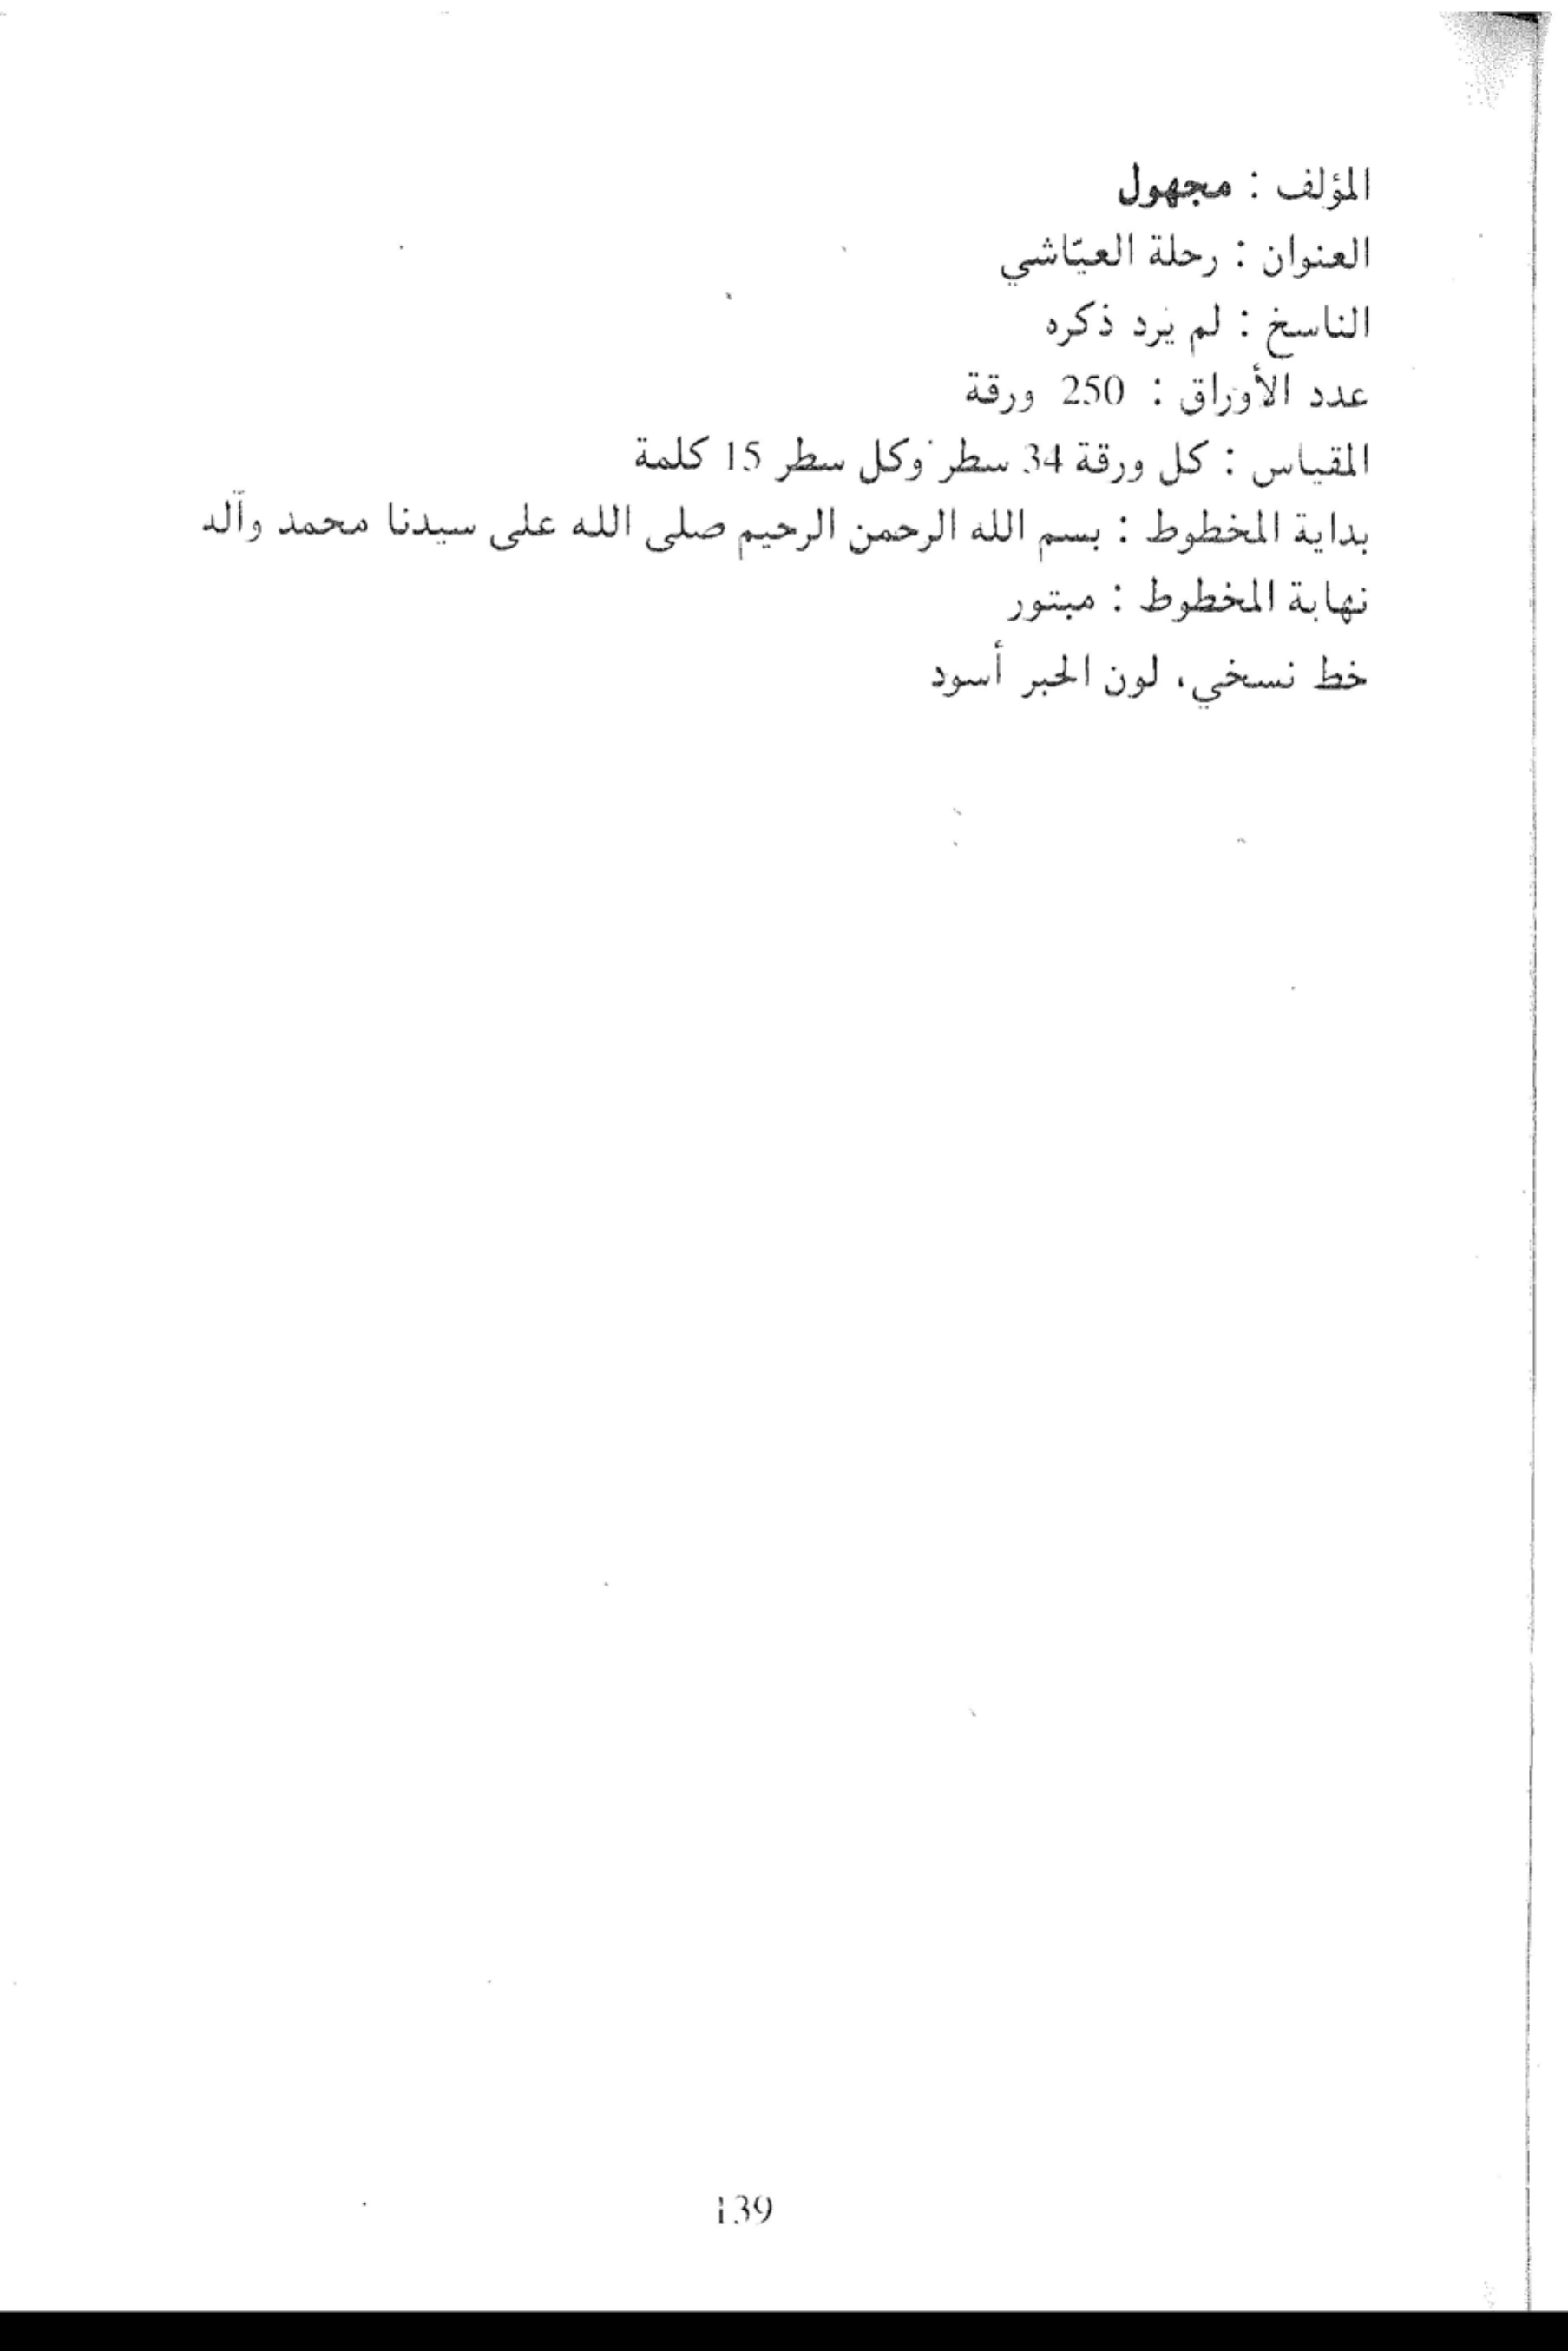 المؤلف : مجهول
العنوان : رحلة العيّاشي
الناسخ : لم يرد ذكره
عدد الأوراق : 250 ورقة
المقياس : كل ورقة 34 سطر وكل سطر 15 كلمة
بداية المخطوط : بسم الله الرحمن الرحيم صلى الله على سيدنا محمد وآله
نهاية المخطوط : مبتور
خط نسخي، لون الحبر أسود
139